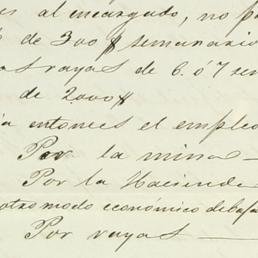 es al encargado, no pa
de 300 $ semanario
rayas de 6. ó 7 sem
de 2000 $
ia entonces el empleo
Por la mina —
Por la Haciend
otro modo económico de ba
Por rayas —